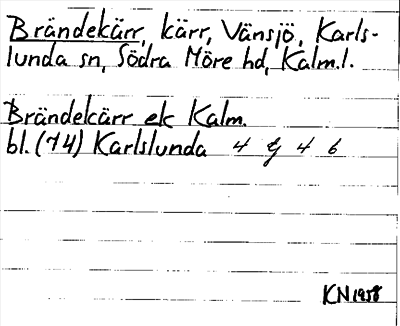 Brändekärr, kärr, Vänsjö, Karls-
lunda sn, Södra Möre hd, Kalm.l.
Brändekärr ek Kalm.
bl. (74) Karlslunda 4 G 4 6
KN 1958